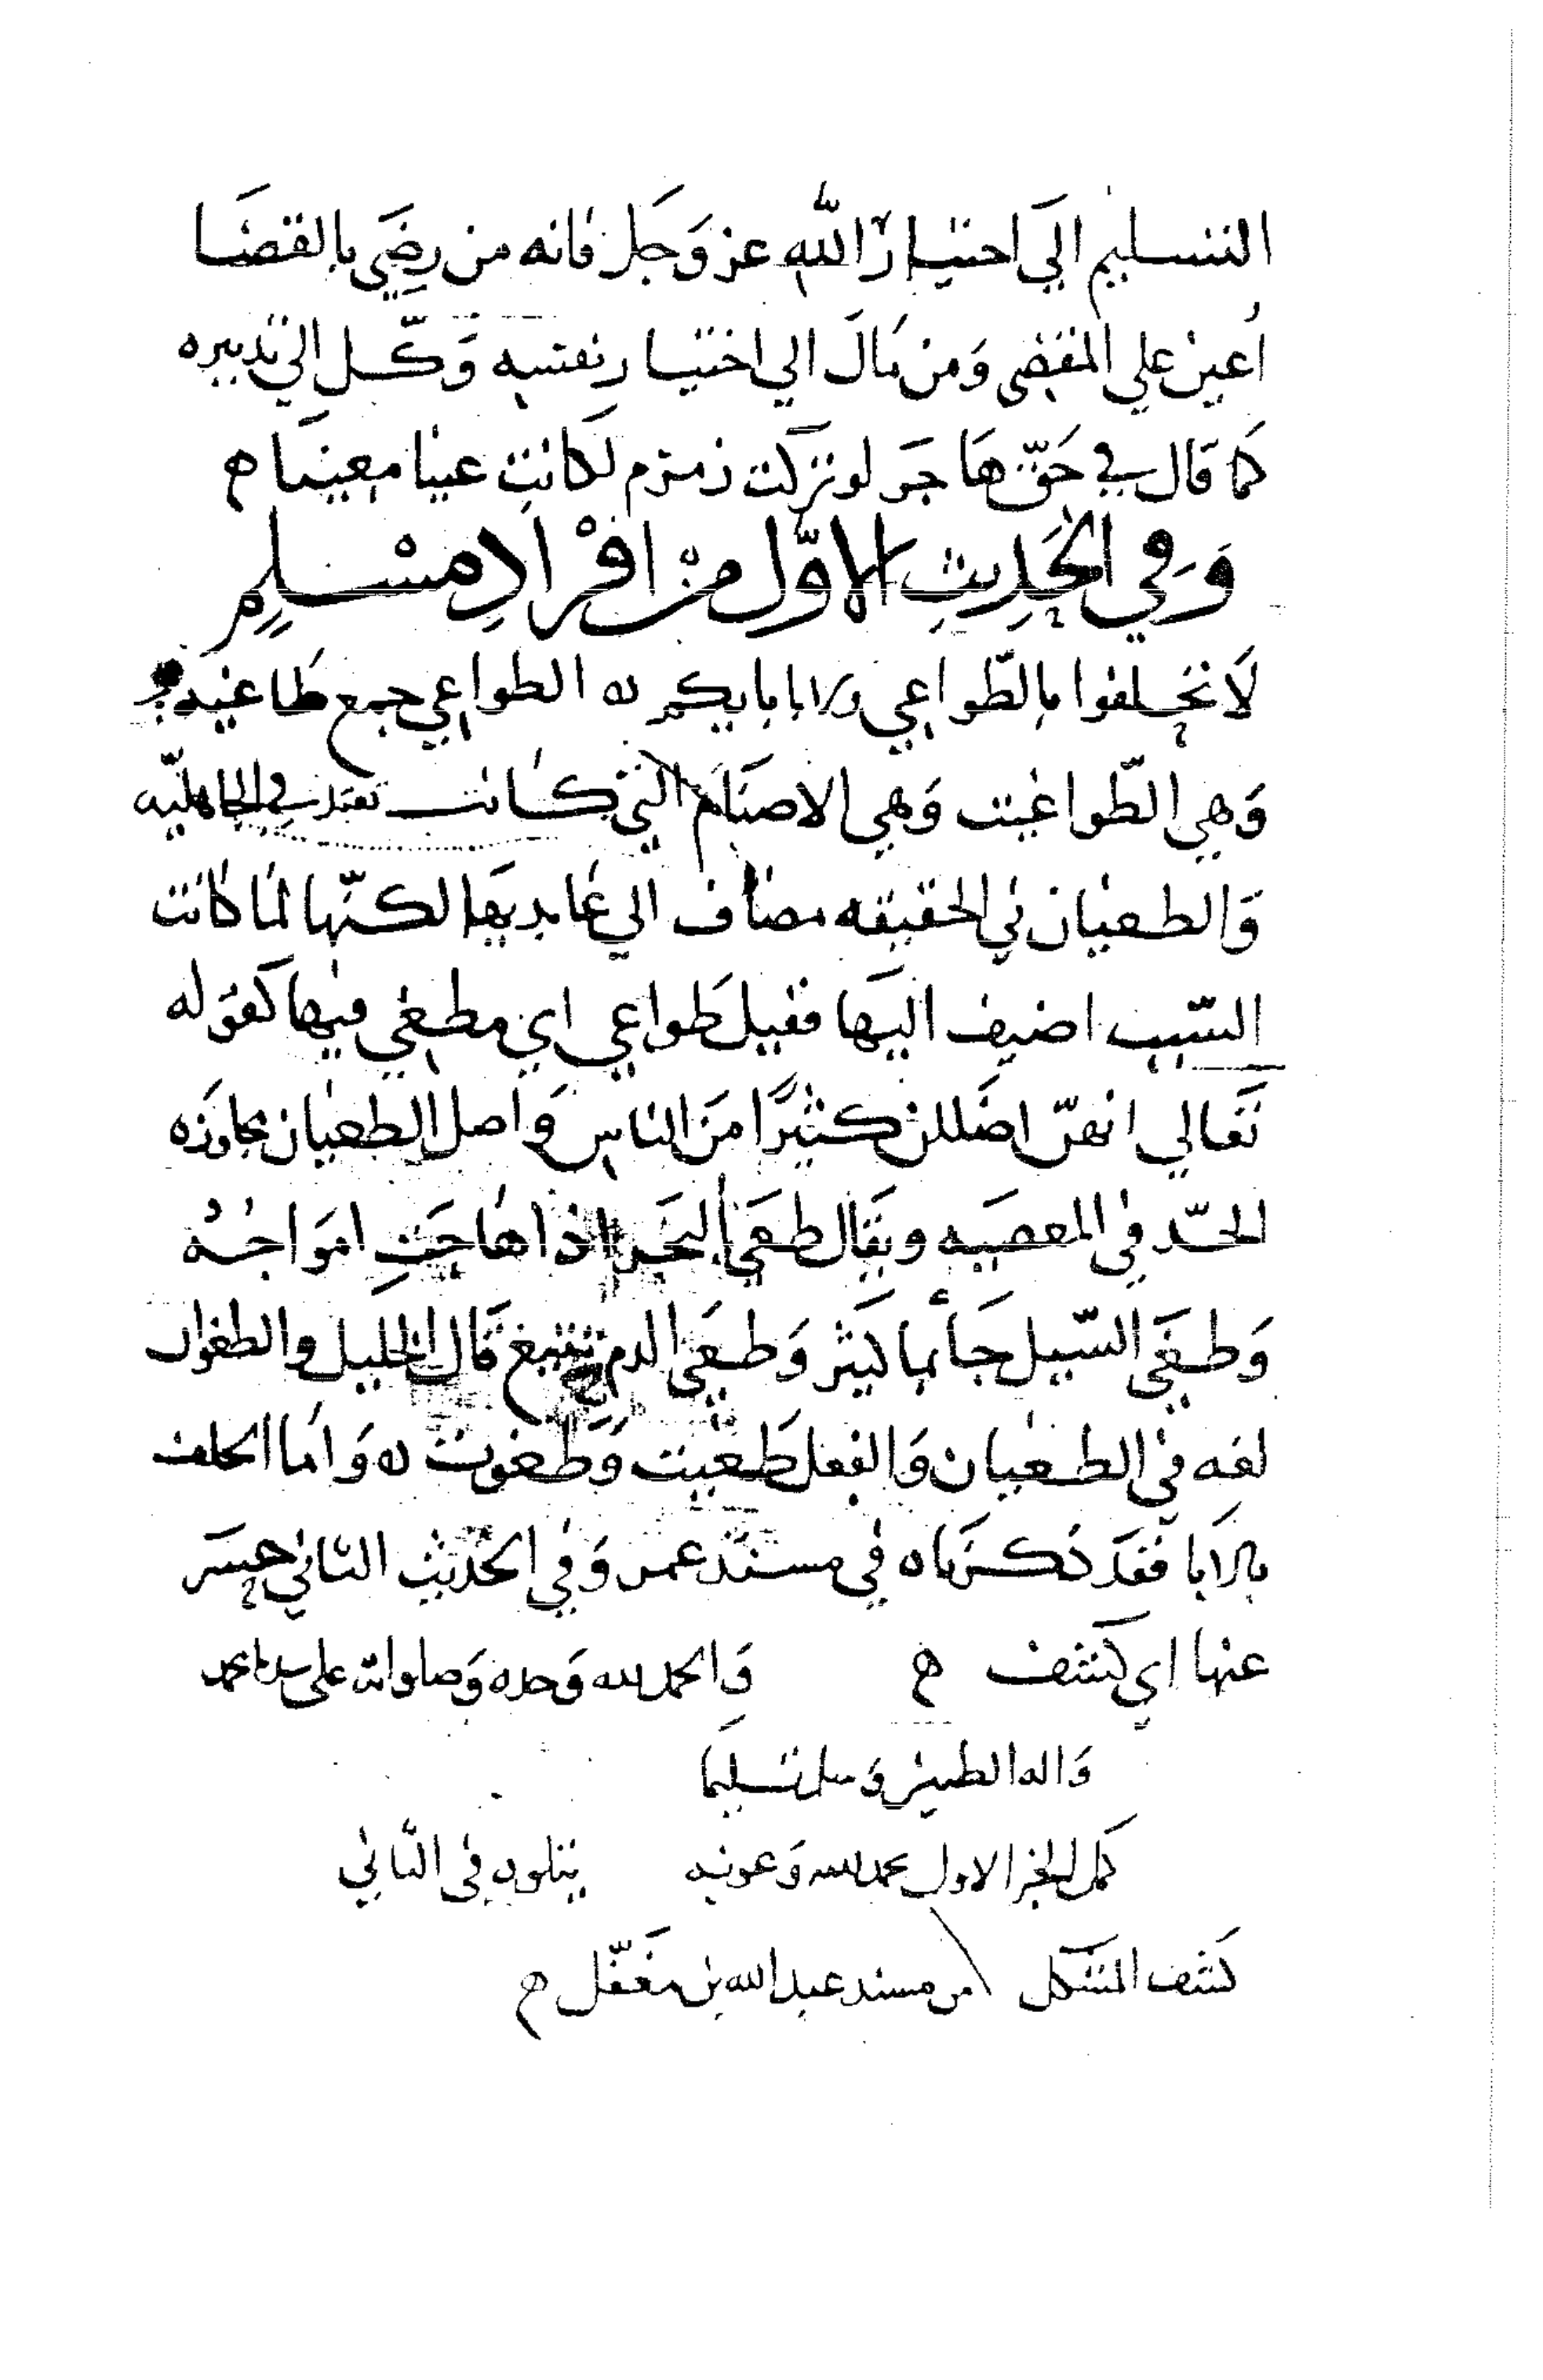 التسليم الي اختيار الله عز وجل فانه من رضي بالقضا
اعين علي المقضي ومن مال الي اختيار نفسه وكل الي تدبيره
كما قال في حق هاجر لو تركت زمزم لكانت عينا معينا ه
وفي الحديث الاول من افراد مسلم
لا تحلفوا بالطواغي ولا بابايكم ه الطواغي جمع طاغيه
وهي الطواغيت وهي الاصنام التي كانت تعبد في الجاهليه
والطغيان في الحقيقه مضاف الي عابديها لكنها لما كانت
السبب اضيف اليها فقيل طواغي اي مطغي فيها كقوله
تعالي انهن اضللن كثيرا من الناس واصل الطغيان مجاوزه
الحد في المعصيه ويقال طغي البحر اذا هاجت امواجه
وطغي السيل جاء بما كثر وطغي الدم تبيغ قال الخليل والطغوان
لغه في الطغيان والفعل طغيت وطغوت ه واما الحلف
بالابا فقد ذكرناه في مسند عمر وفي الحديث الثاني حسر
عنها اي كشف ه والحمد لله وحده وصلواته على سيدنا محمد
واله الطيبين وسلم تسليما
كمل الجز الاول بحمد الله وعونه يتلوه في الثاني
كشف المشكل من مسند عبد الله بن مغفل ه